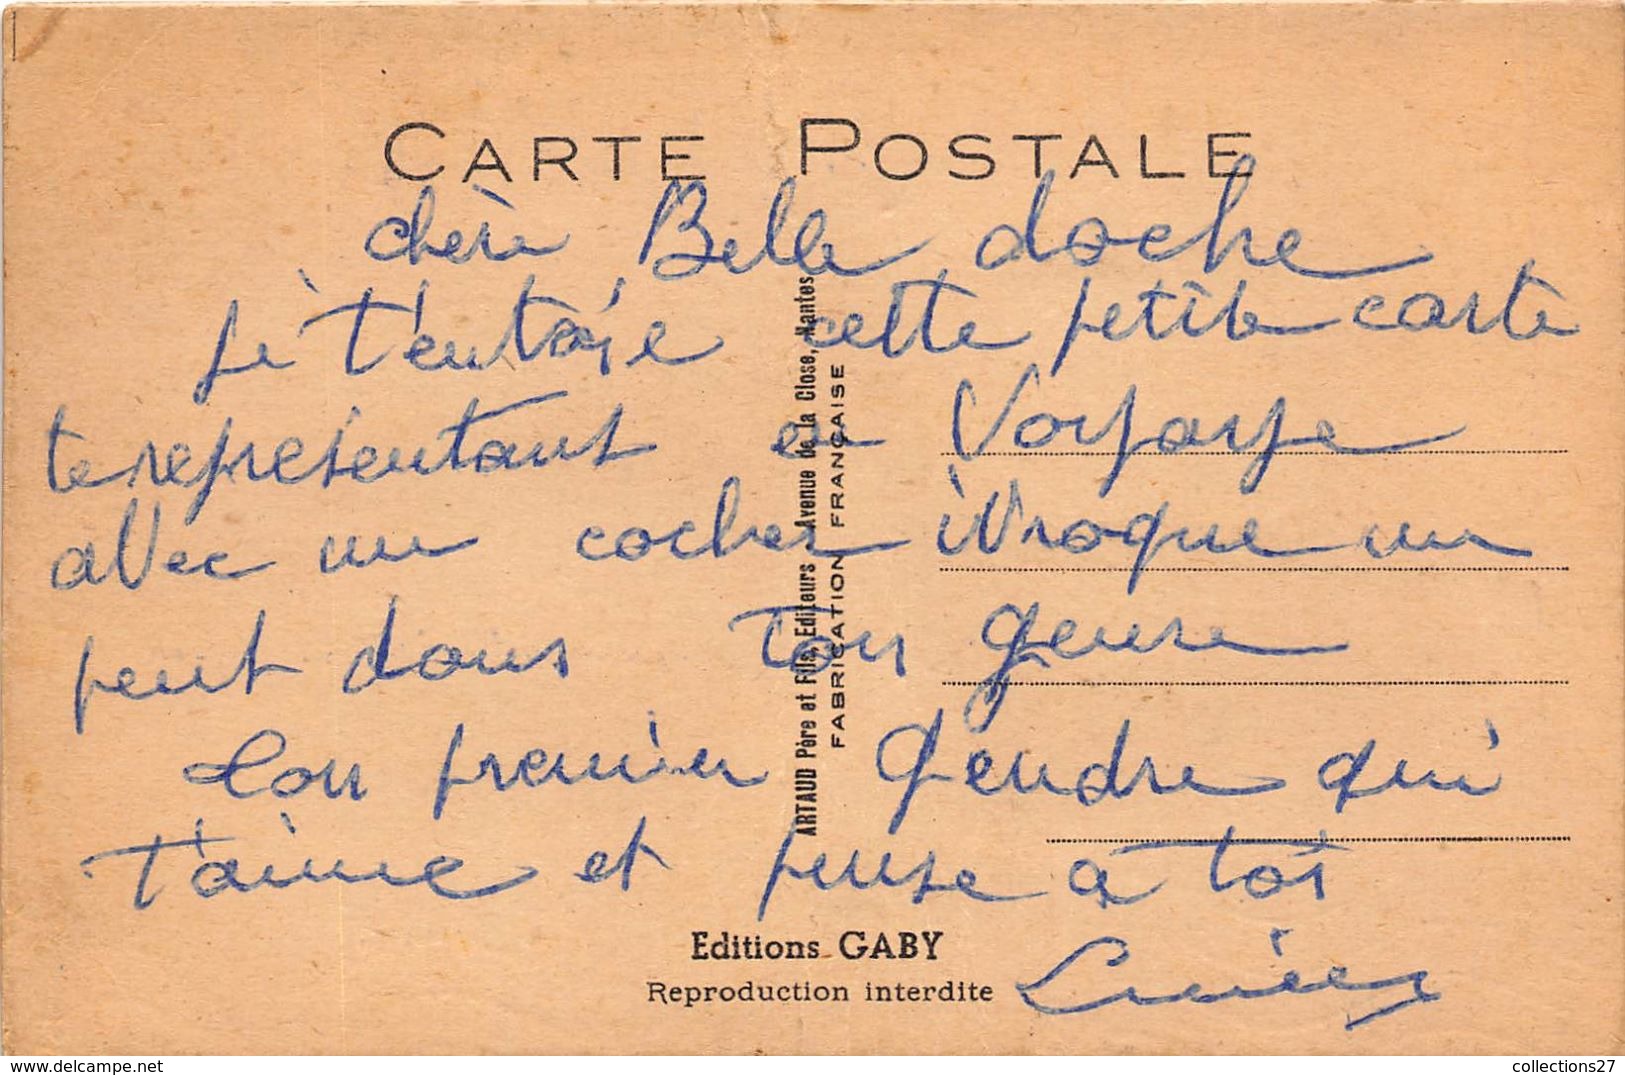 CARTE POSTALE
chère Belle doche
Je t'entoie cette petite carte
te représentant en Voyage
avec un cocher ivroque un
peut dans ton genre
Ton premier gendre qui
t'aime et pense à toi
Lucien
ARTAUD Père et Fils, Editeurs Avenue de la Close, Nantes
FABRICATION FRANÇAISE
Editions GABY
Reproduction interdite
collections27